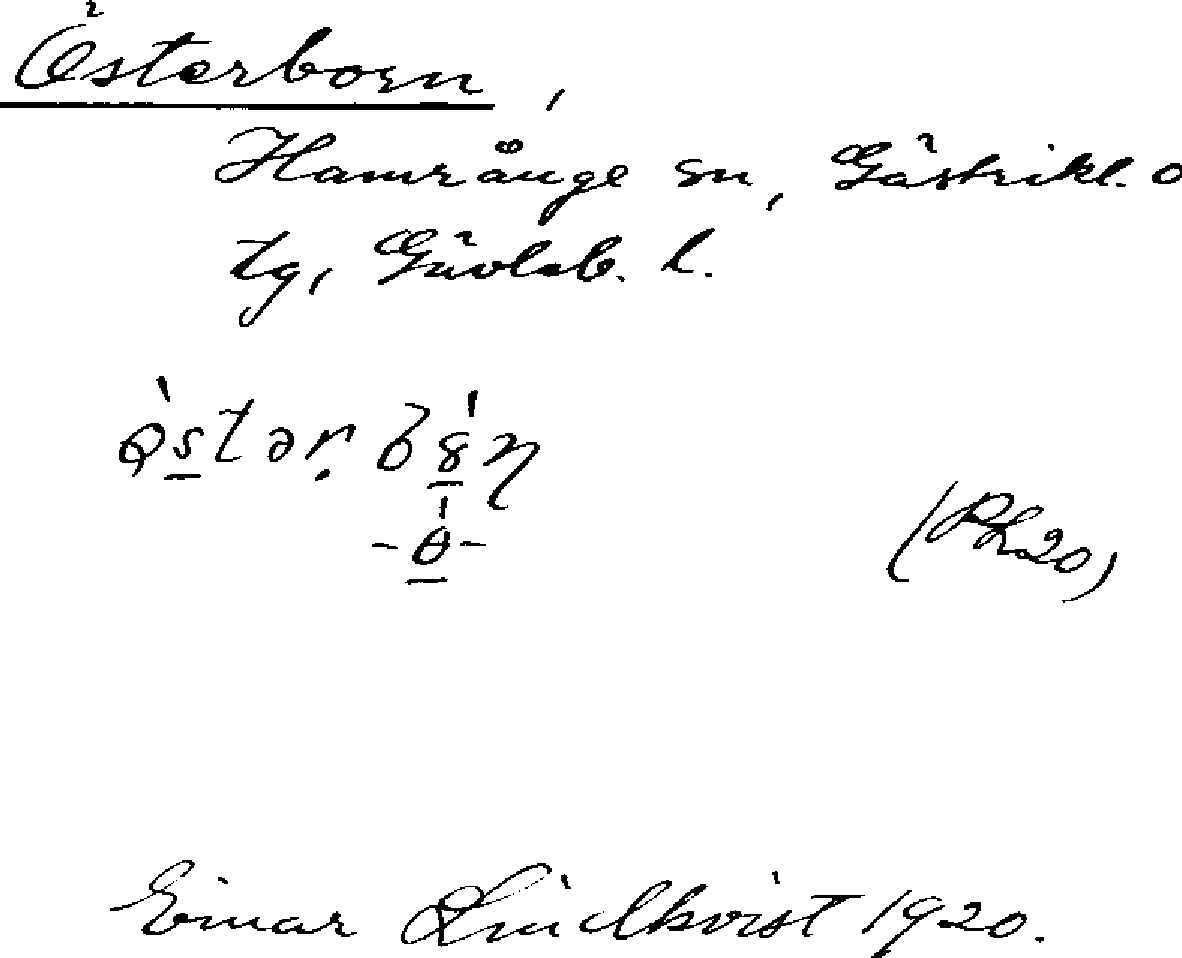 Österborn,
Hamrånge sn, Gästrikl. o
tg, Gävleb. l.
(Ph20)
Einar Lindkvist 1920.